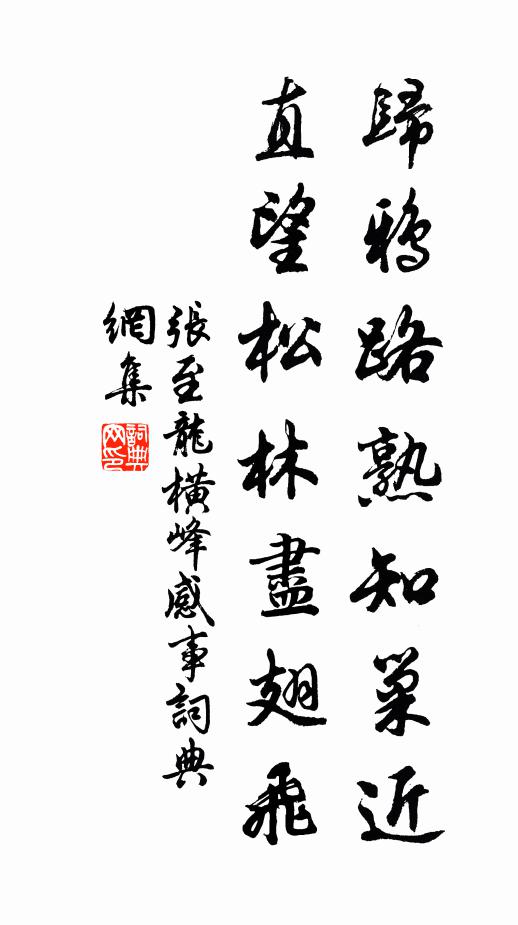 歸鴉路熟知巢近
直望松林盡翅飛
張至龍橫峰感事詞典
網集
詞典網印